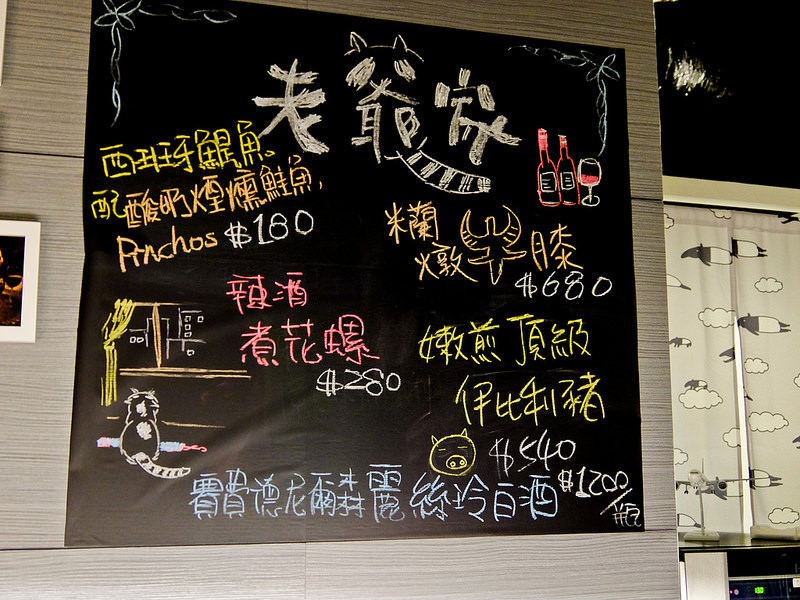 老爺家
西班牙鯷魚、
配酸奶煙燻鮭魚,
Pinchos $180
米蘭
燉牛膝
$680
辣酒
煮花螺
$280
嫩煎頂級
伊比利豬
$540
賽費德尼爾森麗絲玲白酒 $1200/瓶